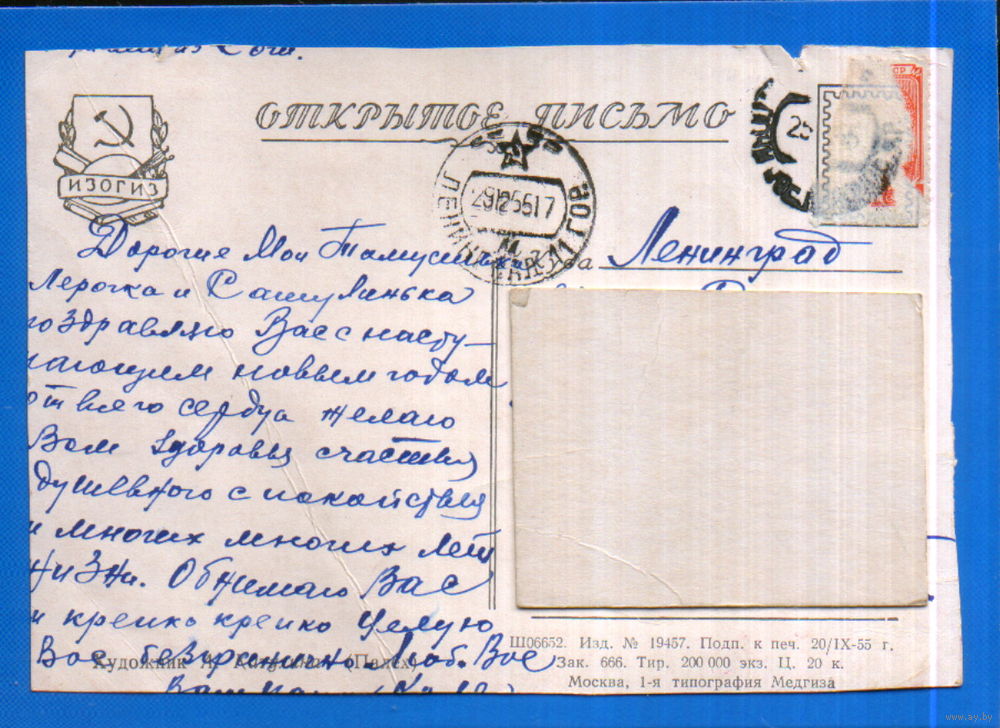 ОТКРЫТОЕ ПИСЬМО
ИЗОГИЗ
ЛЕНИНГРАД
29125517
Ленинград
Дорогие Мои Тамусинька
Лерочка и Сашулинька
поздравляю Вас с насту-
пающим новым годом
от всего сердца желаю
Вам здоровья счастья
душевного спокойствия
и многих многих лет
жизни. Обнимаю Вас
и крепко крепко целую
Вас безгранично Люб. Вас
Художник Палех
Ш06652. Изд. № 19457. Подп. к печ. 20/IX-55 г.
Зак. 666. Тир. 200 000 экз. Ц. 20 к.
Москва, 1-я типография Медгиза
www.ay.by